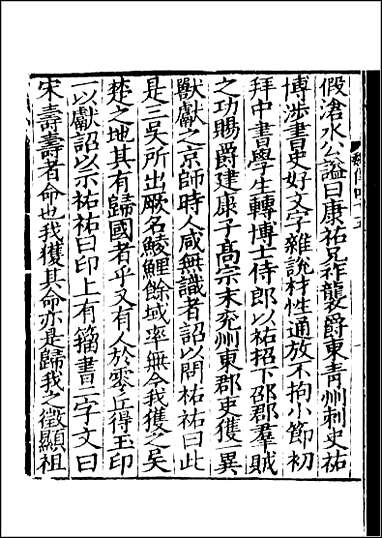 假滄水公諡曰康祐兄祚襲爵東青州刺史祐
博涉書史好文字雜說材性通放不拘小節初
拜中書學生轉博士侍郎以祐招下邵郡羣賊
之功賜爵建康子高宗末兖州東郡吏獲一異
獸獻之京師時人咸無識者詔以問祐祐曰此
是三吳所出厥名鯪鯉餘域率無今我獲之吳
楚之地其有歸國者乎又有人於零丘得玉印
一以獻詔以示祐祐曰印上有籀書二字文曰
宋壽壽者命也我獲其命亦是歸我之徵顯祖